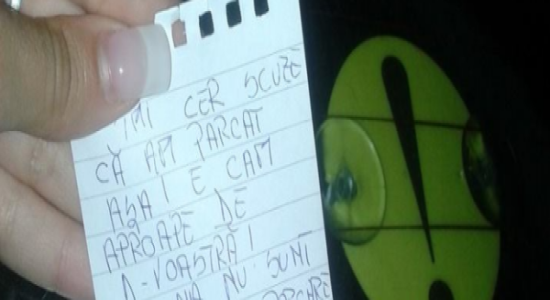 ÎMI CER SCUZE
CĂ AM PARCAT
AȘA! E CAM
APROAPE DE
D-VOASTRĂ!
NU SUNT